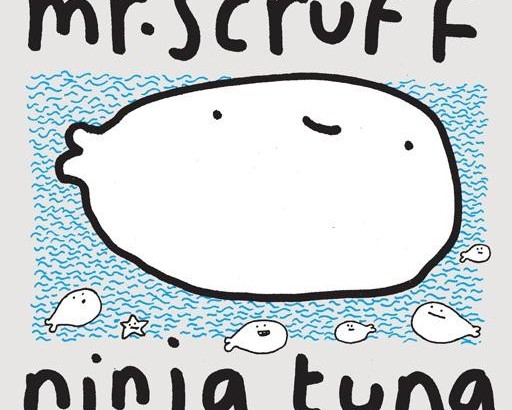 mr.scruff
ninja tuna